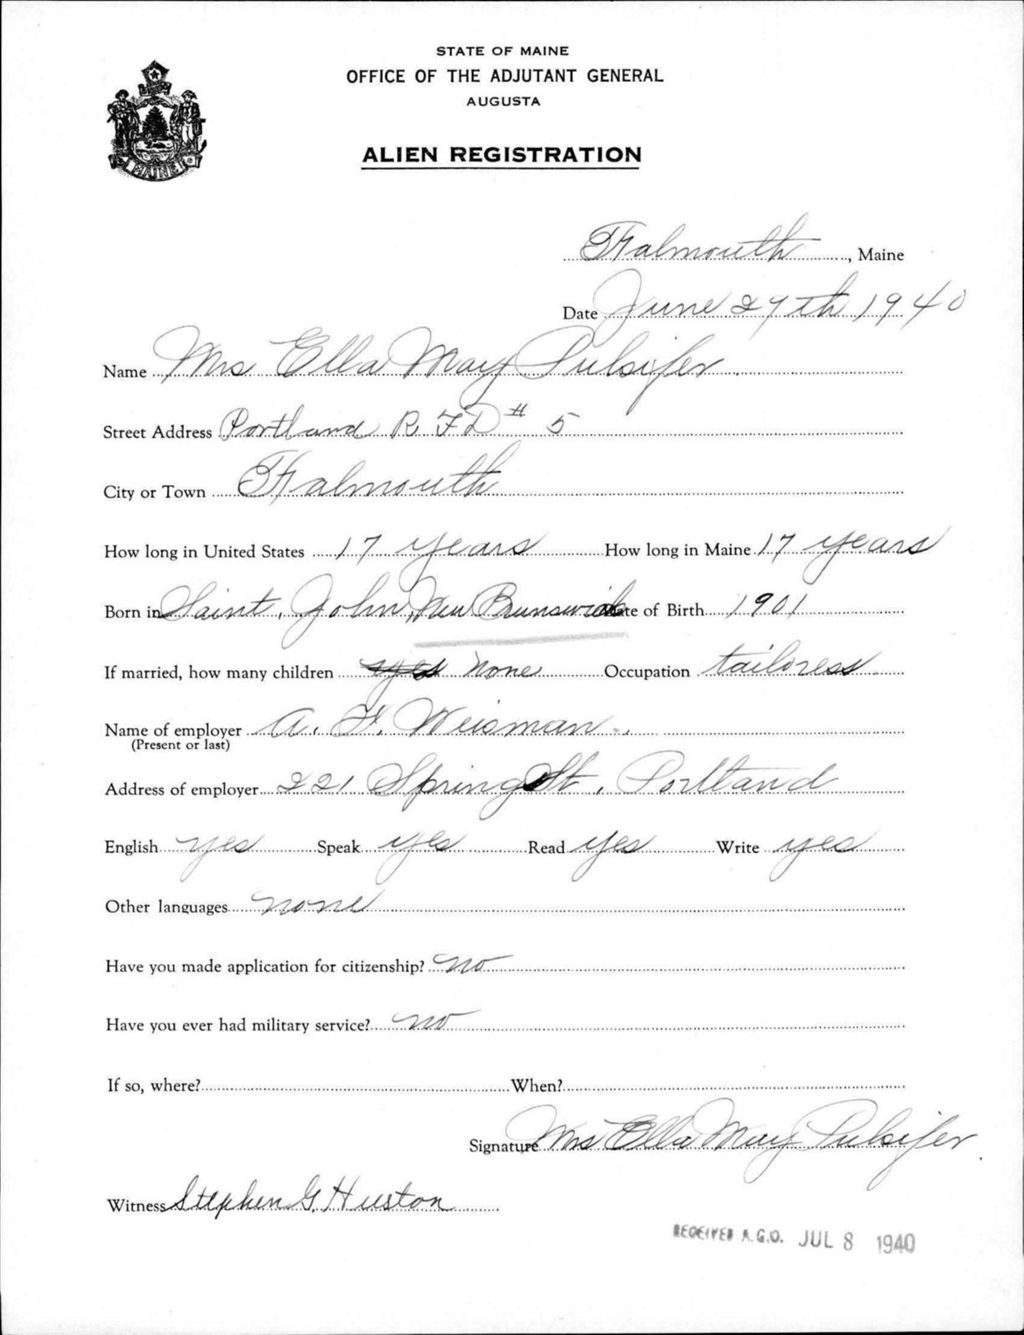 STATE OF MAINE
OFFICE OF THE ADJUTANT GENERAL
AUGUSTA
ALIEN REGISTRATION
MAINE
Falmouth, Maine
Date June 27th 1940
Name Mrs Ella May Pulsifer
Street Address Portland R.F.D # 5
City or Town Falmouth
How long in United States 17 years How long in Maine 17 years
Born in Saint, John, New Brunswick Date of Birth 1901
If married, how many children yes none Occupation tailoress
Name of employer A. F. Weisman.
(Present or last)
Address of employer 221 Spring St, Portland
English yes Speak yes Read yes Write yes
Other languages none
Have you made application for citizenship? no
Have you ever had military service? no
If so, where? When?
Signature Mrs Ella May Pulsifer
Witness Stephen G. Huston
RECEIVED A.G.O. JUL 8 1940